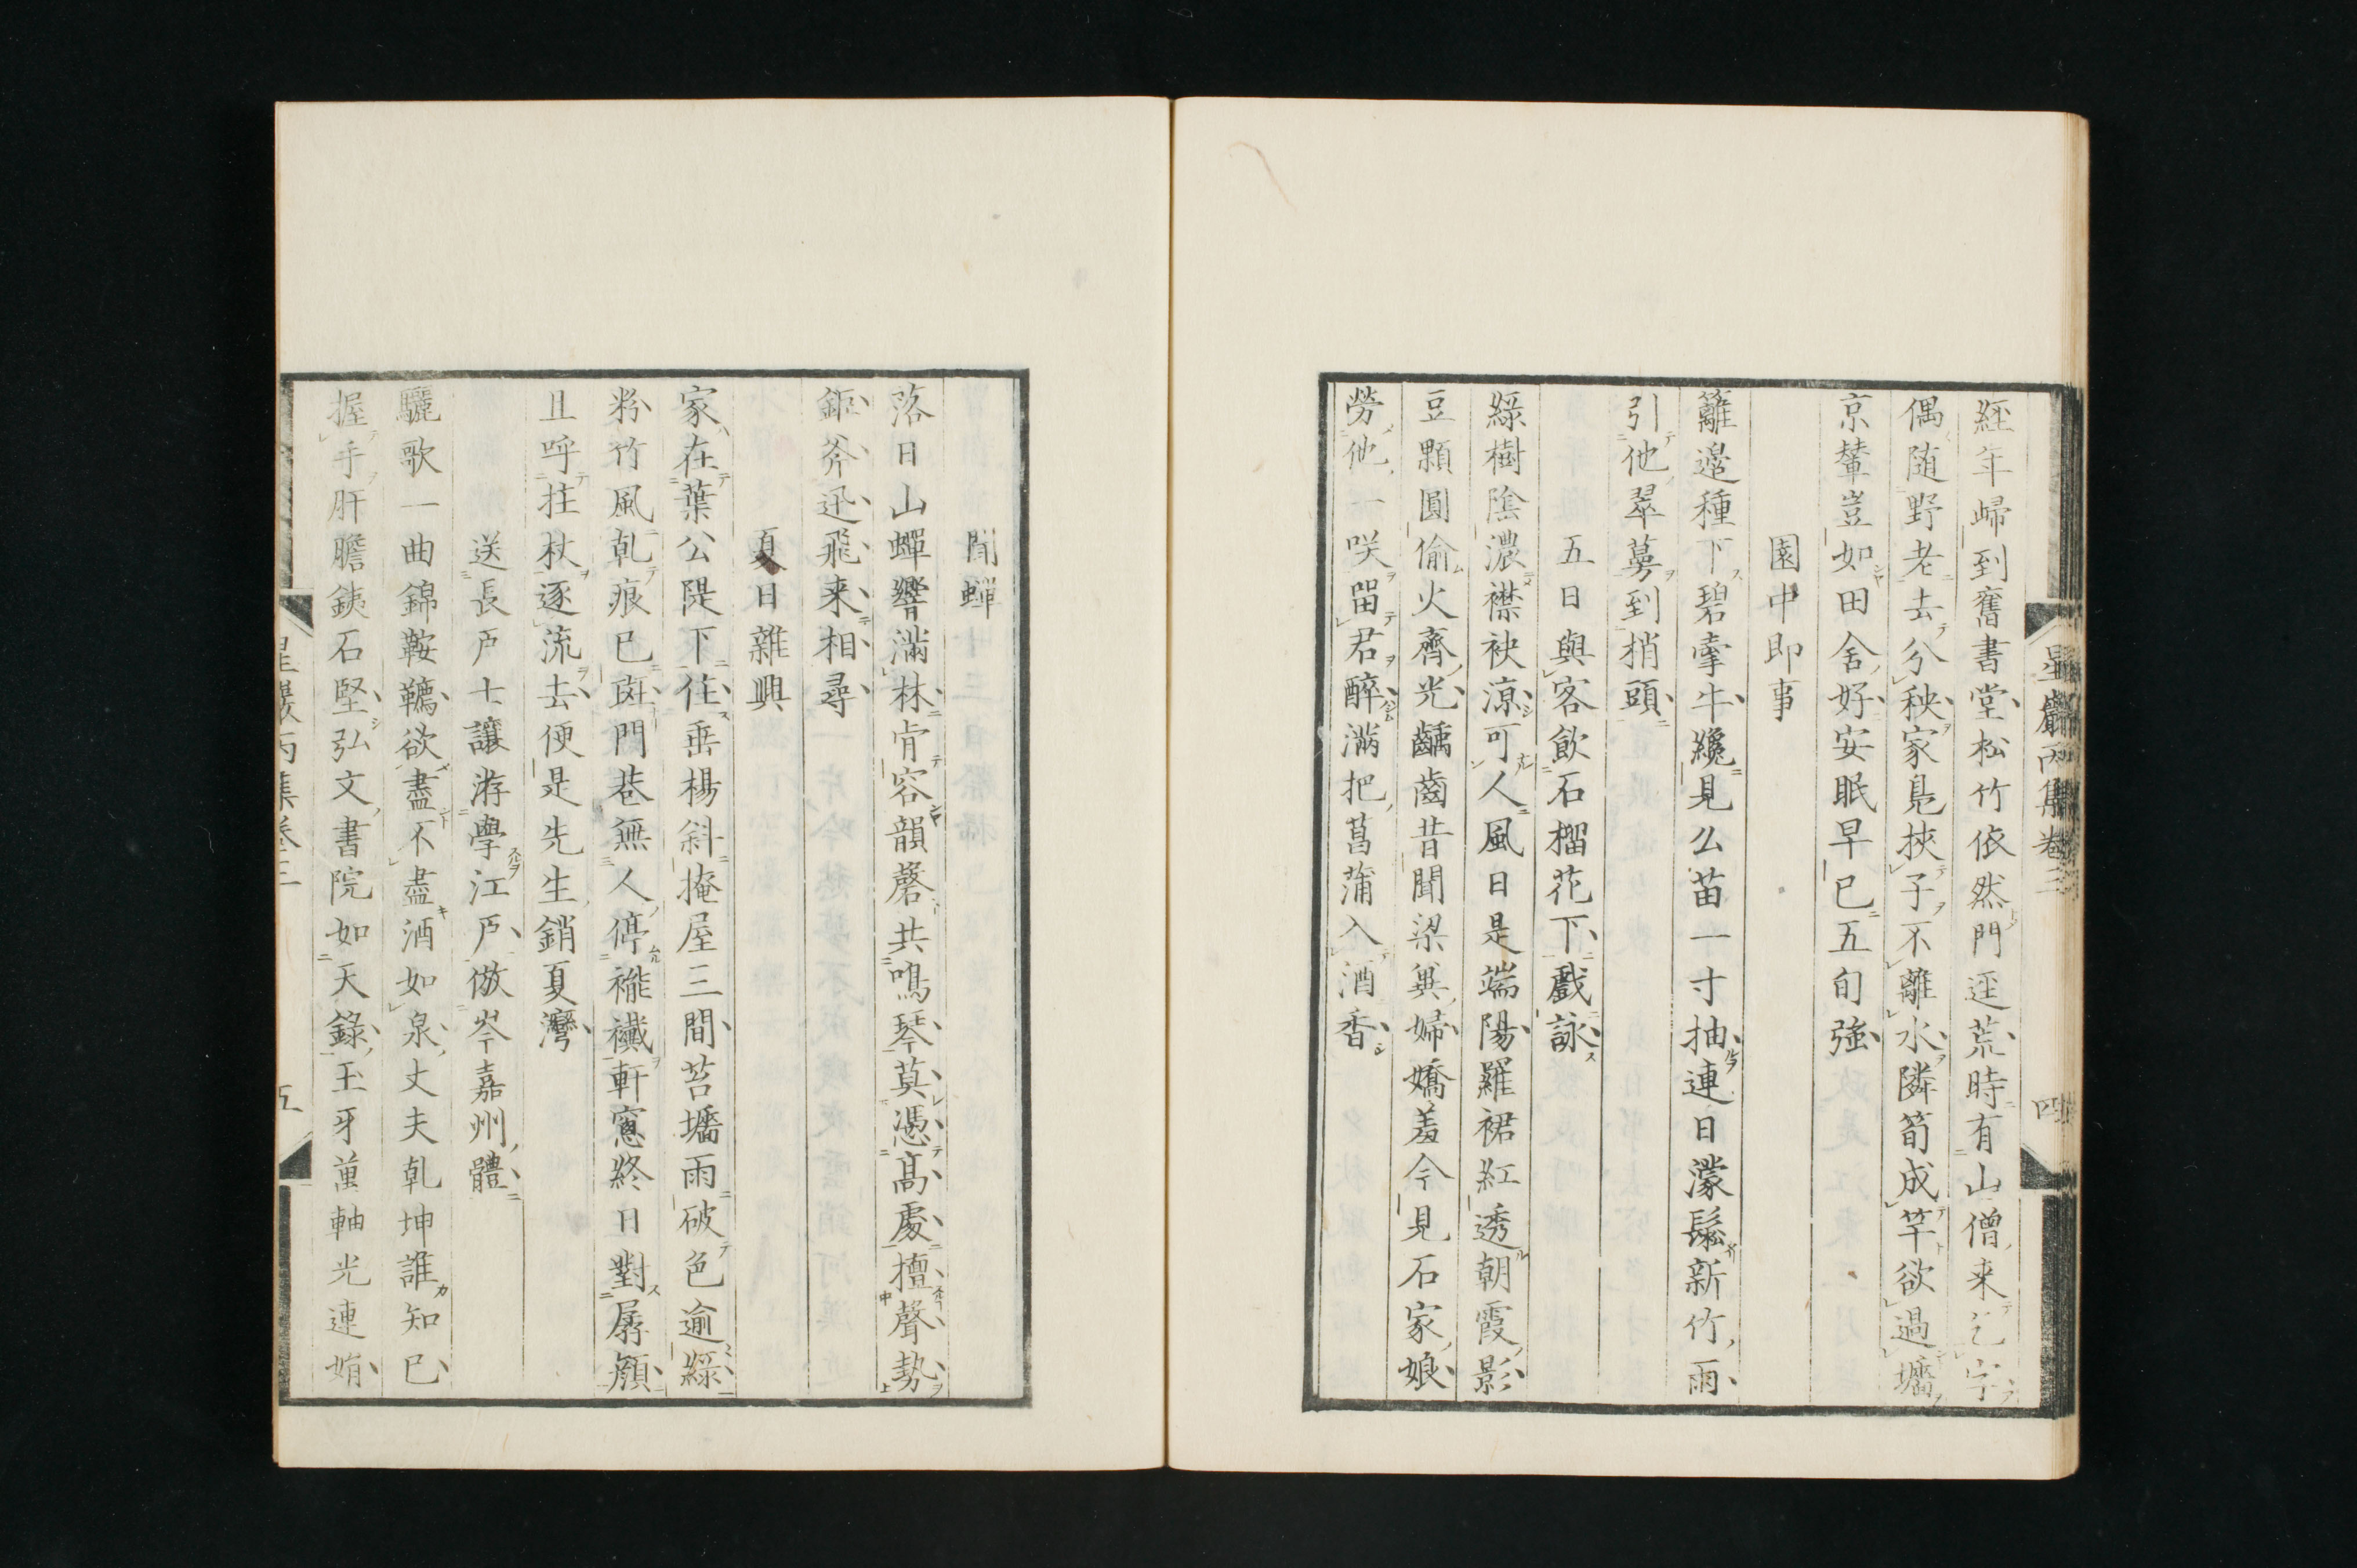 經年歸到舊書堂松竹依然門逕荒時有山僧来乞字
偶随野老去分秧家鳬挾子不離水隣筍成竿欲過墻
京輦豈如田舍好安眠早已五旬強
園中即事
籬邊種下碧牽牛纔見么苗一寸抽連日濛鬆新竹雨
引他翠蔓到梢頭
五日與客飲石榴花下戲詠
綠樹陰濃襟袂凉可人風日是端陽羅裙紅透朝霞影
豆顆圓偷火齊光齲齒昔聞梁冀婦嬌羞今見石家娘
勞他一咲留君醉滿把菖蒲入酒香
星巖丙集卷三 四
聞蟬
落日山蟬響滿林肯容韻磬共鳴琴莫憑高處擅聲勢
鉅斧迅飛来相尋
夏日雜興
家在葉公隄下住垂楊斜掩屋三間苔墻雨破色逾綠
粉竹風乾痕已斑門巷無人停褦襶軒窓終日對孱顏
且呼拄杖逐流去便是先生銷夏灣
送長戸士讓游學江戸倣岑嘉州體
驪歌一曲錦鞍韉欲盡不盡酒如泉丈夫乾坤誰知已
握手肝膽鐵石堅弘文書院如天錄玉牙萬軸光連娟
星巖丙集卷三 五